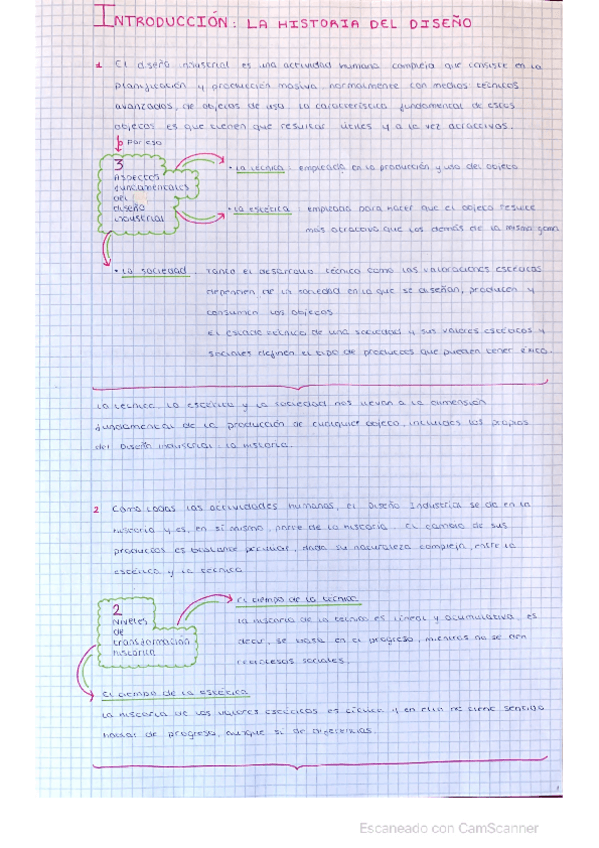 INTRODUCCIÓN: LA HISTORIA DEL DISEÑO
1 El diseño industrial es una actividad humana compleja que consiste en la
planificación y producción masiva, normalmente con medios técnicos
avanzados, de objetos de uso. La característica fundamental de estos
objetos es que tienen que resultar útiles y a la vez atractivos.
Por eso
3
Aspectos
fundamentales
del
diseño
industrial
• La técnica: empleada en la producción y uso del objeto
• La estética: empleada para hacer que el objeto resulte
más atractivo que los demás de la misma gama
• La sociedad Tanto el desarrollo técnico como las valoraciones estéticas
dependen de la sociedad en la que se diseñan, producen y
consumen los objetos
El estado técnico de una sociedad y sus valores estéticos y
sociales definen el tipo de productos que pueden tener éxito.
La técnica, la estética y la sociedad nos llevan a la dimensión
fundamental de la producción de cualquier objeto, incluidos los propios
del Diseño Industrial: la historia.
2 Como todas las actividades humanas, el Diseño Industrial se da en la
historia y es, en sí mismo, parte de la historia. El cambio de sus
productos es bastante peculiar, dada su naturaleza compleja, entre la
estética y la técnica
2
Niveles
de
transformación
histórica
El tiempo de la técnica
La historia de la técnica es lineal y acumulativa, es
decir, se basa en el progreso, mientras no se den
retrocesos sociales.
El tiempo de la estética
La historia de los valores estéticos es cíclica y en ella no tiene sentido
hablar de progreso, aunque sí de diferencias.
Escaneado con CamScanner